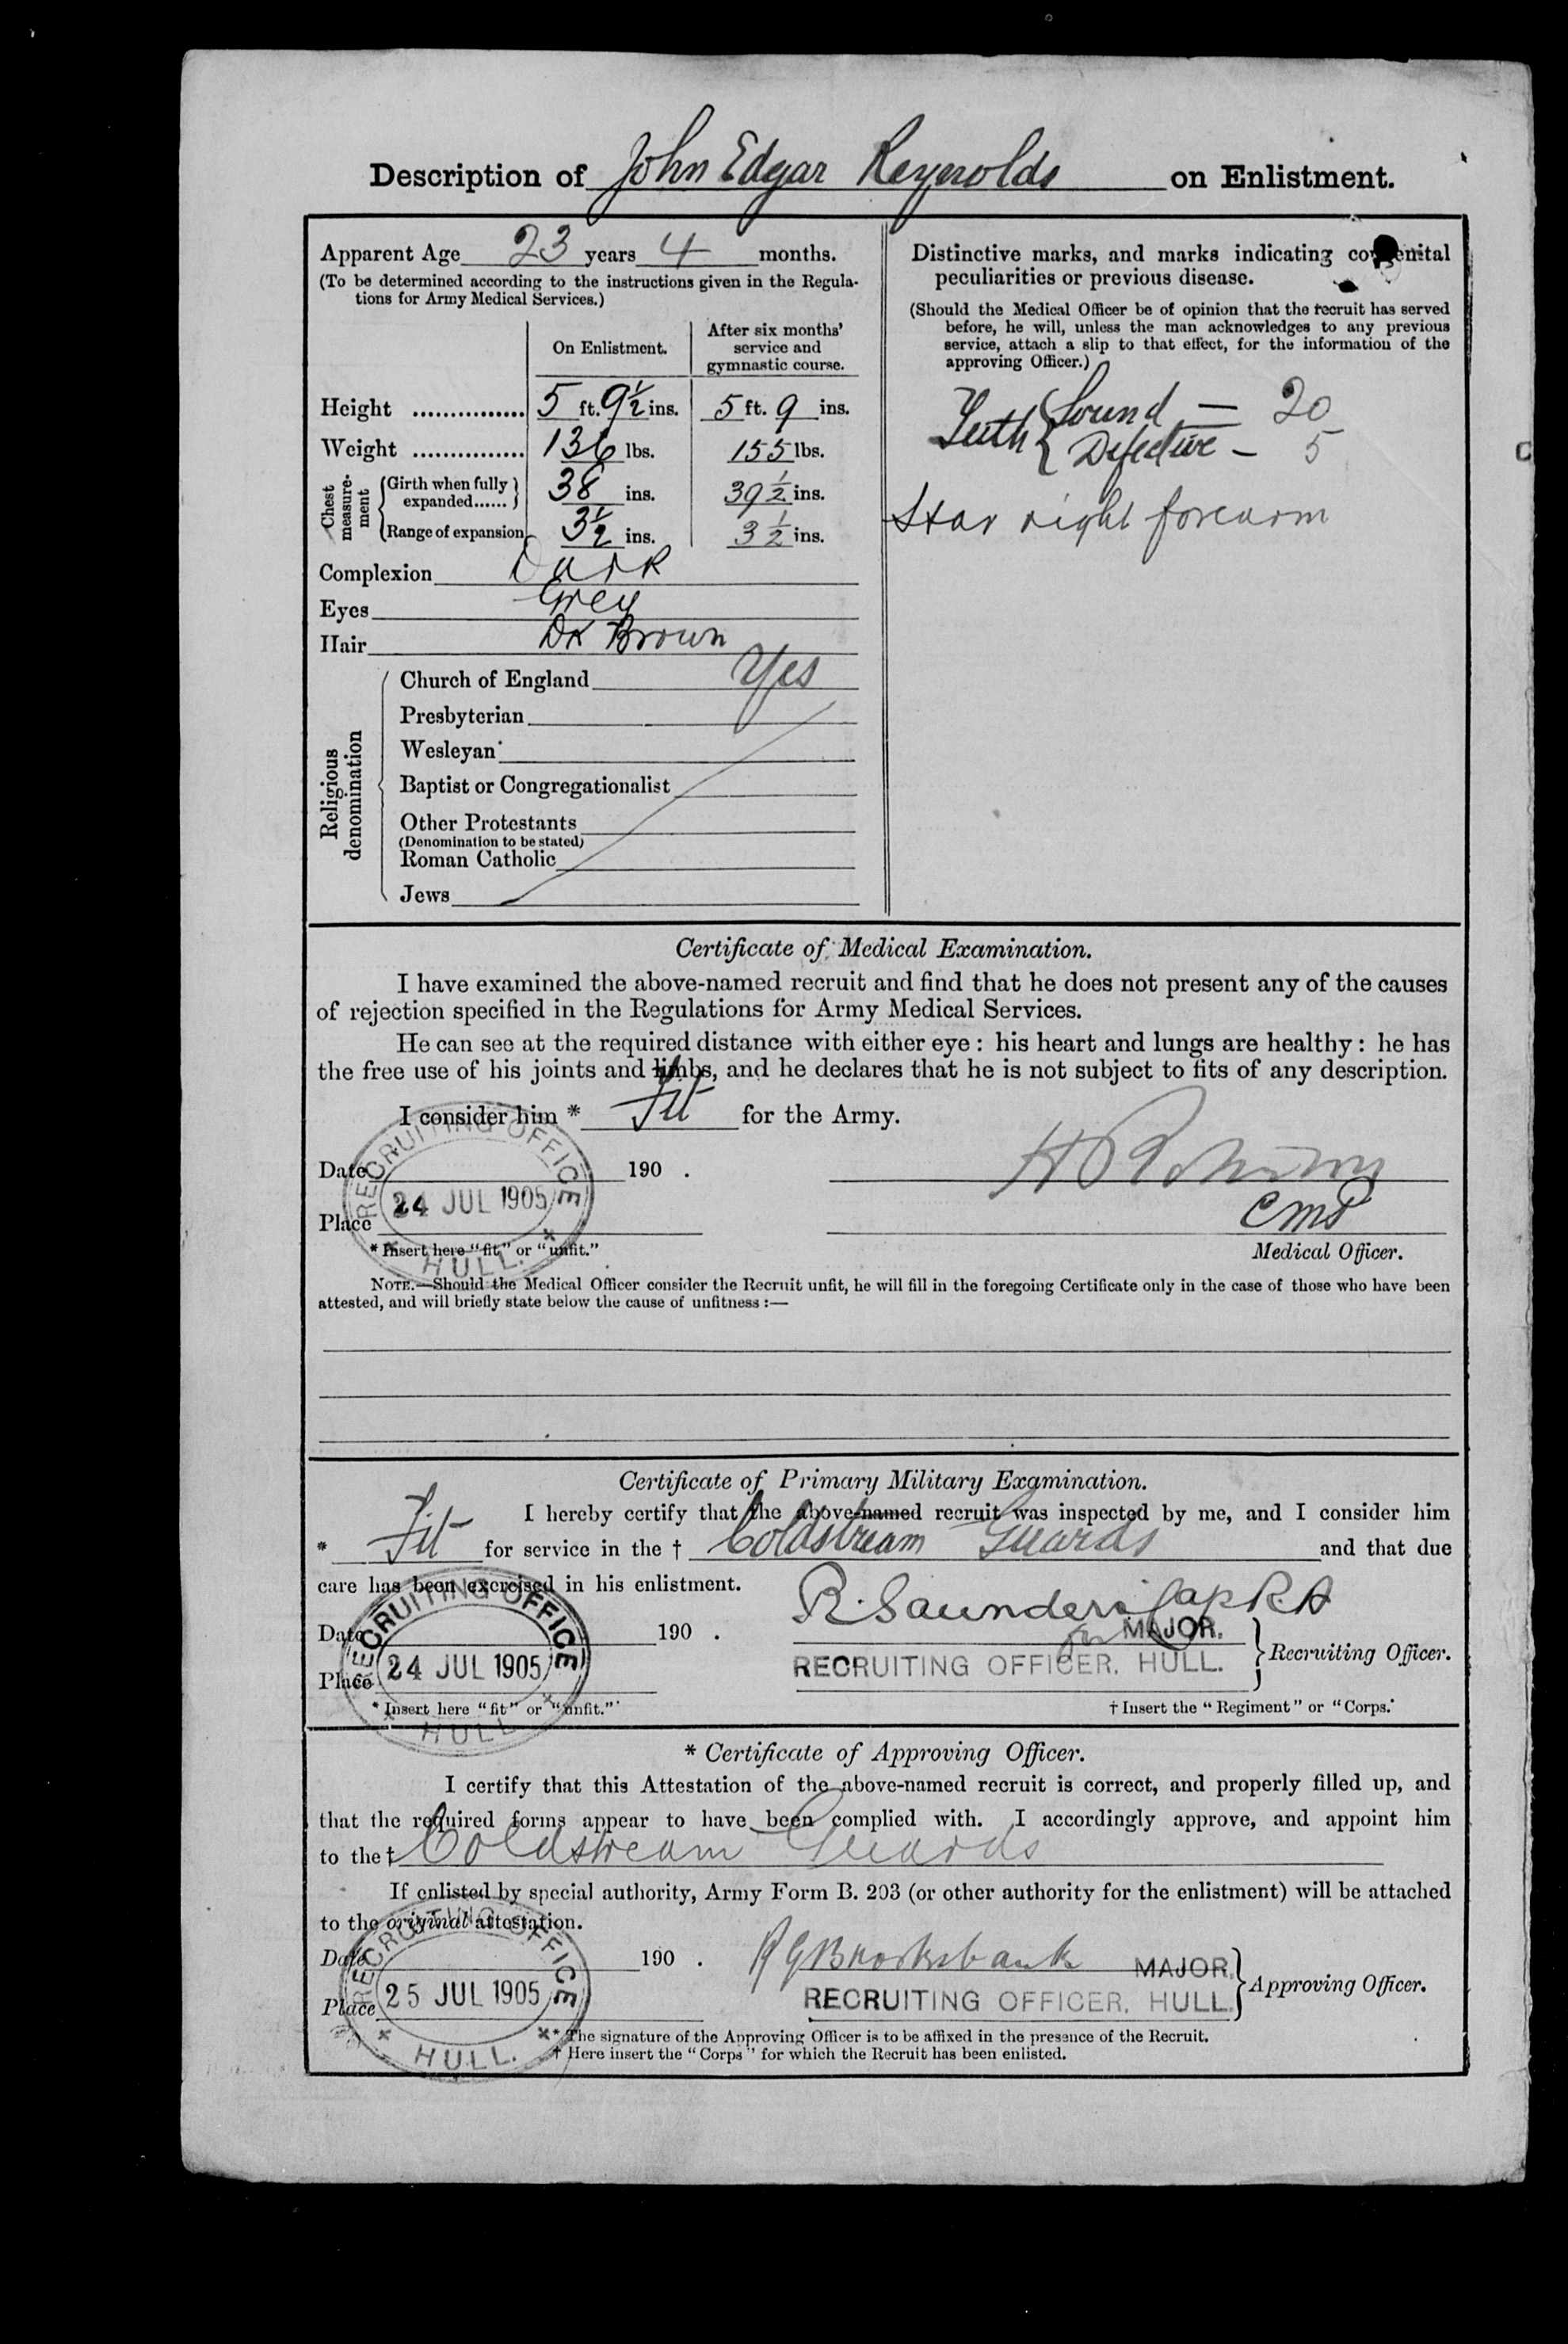 Description of John Edgar Reynolds on Enlistment.
Apparent Age 23 years 4 months.
(To be determined according to the instructions given in the Regula-
tions for Army Medical Services.)
On Enlistment.
After six months'
service and
gymnastic course.
Height ............... 5 ft. 9½ ins. 5 ft. 9 ins.
Weight ............... 136 lbs. 155 lbs.
Chest
measure-
ment
Girth when fully
expanded...... 38 ins. 39½ ins.
Range of expansion 3½ ins. 3½ ins.
Complexion Dark
Eyes Grey
Hair Dk Brown
Religious
denomination
Church of England Yes
Presbyterian
Wesleyan
Baptist or Congregationalist
Other Protestants
(Denomination to be stated)
Roman Catholic
Jews
Distinctive marks, and marks indicating congenital
peculiarities or previous disease.
(Should the Medical Officer be of opinion that the recruit has served
before, he will, unless the man acknowledges to any previous
service, attach a slip to that effect, for the information of the
approving Officer.)
Teeth { Sound — 20
Defective — 5
Star right forearm
Certificate of Medical Examination.
I have examined the above-named recruit and find that he does not present any of the causes
of rejection specified in the Regulations for Army Medical Services.
He can see at the required distance with either eye : his heart and lungs are healthy : he has
the free use of his joints and limbs, and he declares that he is not subject to fits of any description.
I consider him * Fit for the Army.
Date 190 .
Place
RECRUITING OFFICE
24 JUL 1905
HULL.
CMP
Medical Officer.
* Insert here "fit" or "unfit."
NOTE.—Should the Medical Officer consider the Recruit unfit, he will fill in the foregoing Certificate only in the case of those who have been
attested, and will briefly state below the cause of unfitness :—
Certificate of Primary Military Examination.
I hereby certify that the above-named recruit was inspected by me, and I consider him
* Fit for service in the † Coldstream Guards and that due
care has been exercised in his enlistment.
R. Saunders Cap RA
Date 190 .
for MAJOR.
RECRUITING OFFICER, HULL.
Recruiting Officer.
Place
RECRUITING OFFICE
24 JUL 1905
HULL
* Insert here "fit" or "unfit."
† Insert the "Regiment" or "Corps."
* Certificate of Approving Officer.
I certify that this Attestation of the above-named recruit is correct, and properly filled up, and
that the required forms appear to have been complied with. I accordingly approve, and appoint him
to the † Coldstream Guards
If enlisted by special authority, Army Form B. 203 (or other authority for the enlistment) will be attached
to the original attestation.
Date 190 .
Brooksbank MAJOR.
RECRUITING OFFICER, HULL.
Approving Officer.
Place
RECRUITING OFFICE
25 JUL 1905
HULL.
* The signature of the Approving Officer is to be affixed in the presence of the Recruit.
† Here insert the "Corps" for which the Recruit has been enlisted.